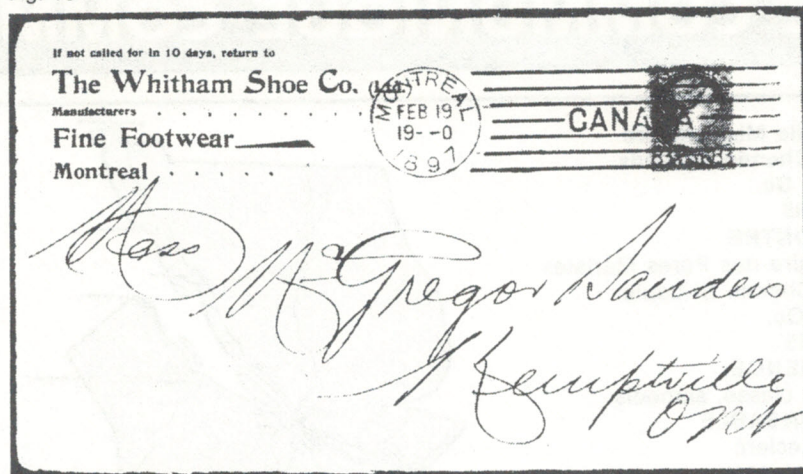 If not called for in 10 days, return to
The Whitham Shoe Co. (Ltd.)
Manufacturers . . . . . . .
Fine Footwear
Montreal . . . . . .
MONTREAL
FEB 19
19--0
1897
CANADA
McGregor Sanders
Kemptville
Ont